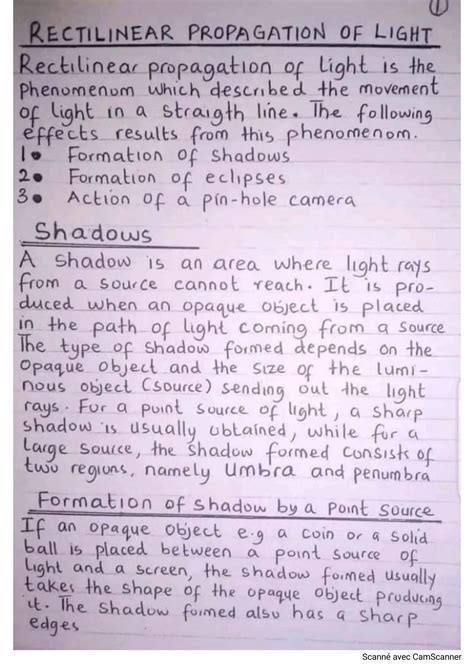 1
RECTILINEAR PROPAGATION OF LIGHT
Rectilinear propagation of light is the
phenomenom which described the movement
of light in a straigth line. The following
effects results from this phenomenom.
1. Formation of shadows
2. Formation of eclipses
3. Action of a pin-hole camera
Shadows
A shadow is an area where light rays
from a source cannot reach. It is pro-
duced when an opaque object is placed
in the path of light coming from a source
The type of shadow formed depends on the
opaque object and the size of the lumi-
nous object (source) sending out the light
rays. For a point source of light, a sharp
shadow is usually obtained, while for a
large source, the shadow formed consists of
two regions, namely umbra and penumbra
Formation of shadow by a point source
If an opaque object e.g a coin or a solid
ball is placed between a point source of
light and a screen, the shadow formed usually
takes the shape of the opaque object producing
it. The shadow formed also has a sharp
edges
Scanné avec CamScanner